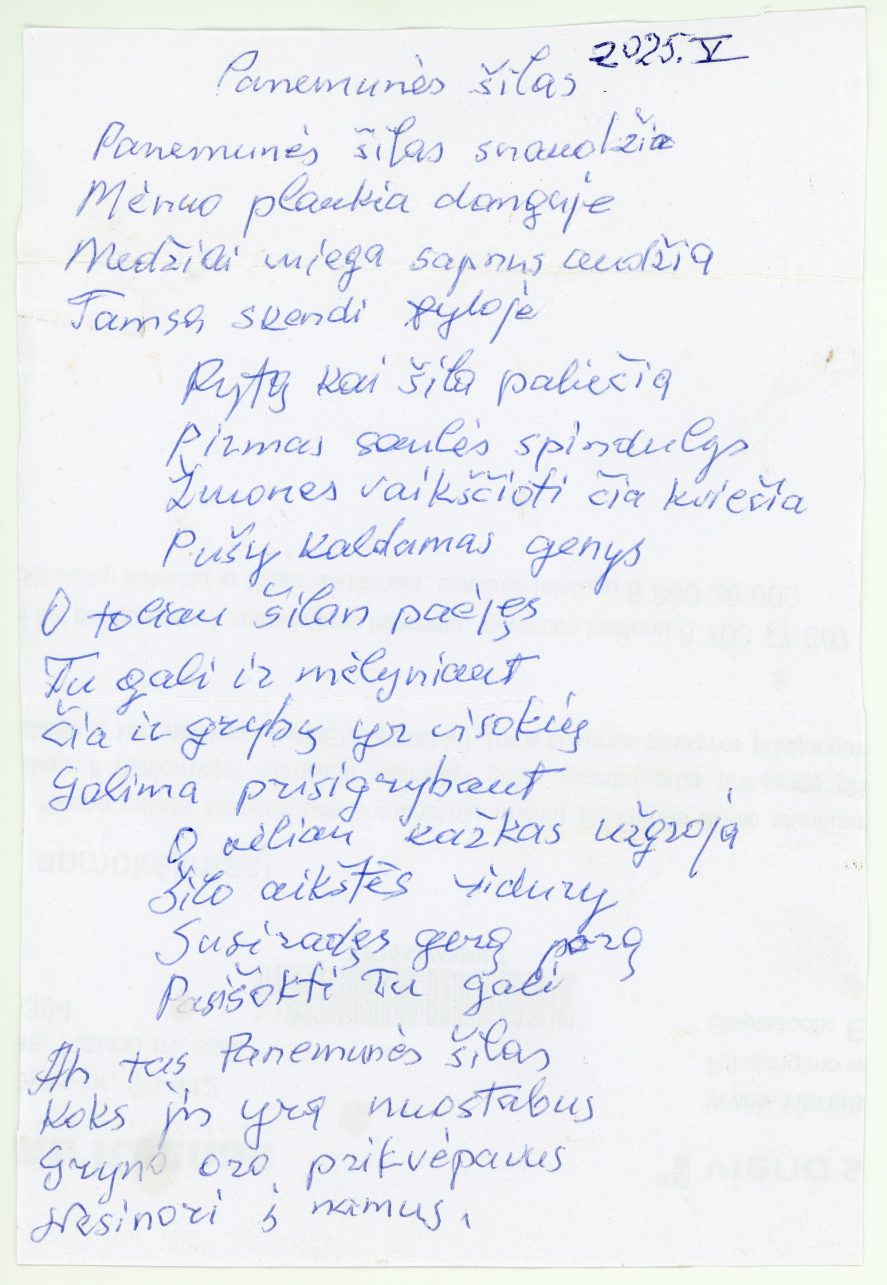 2025.V
Panemunės šilas
Panemunės šilas snaudžia
Mėnuo plaukia danguje
Medžiai miega sapnus audžia
Tamsa skendi tyloje
Rytą kai šilą paliečia
Pirmas saulės spindulys
Žmones vaikščioti čia kviečia
Pušy kaldamas genys
O toliau šilan paėjęs
Tu gali ir mėlyniaut
Čia ir grybų yr visokių
Galima prisigrybaut
O vėliau kažkas užgroja
Šilo aikštės vidury
Susiradęs gerą porą
Pasišokti Tu gali
Ah tas Panemunės šilas
Koks jis yra nuostabus
Gryno oro prikvėpavus
Nesinori į namus.
8 700 77 007